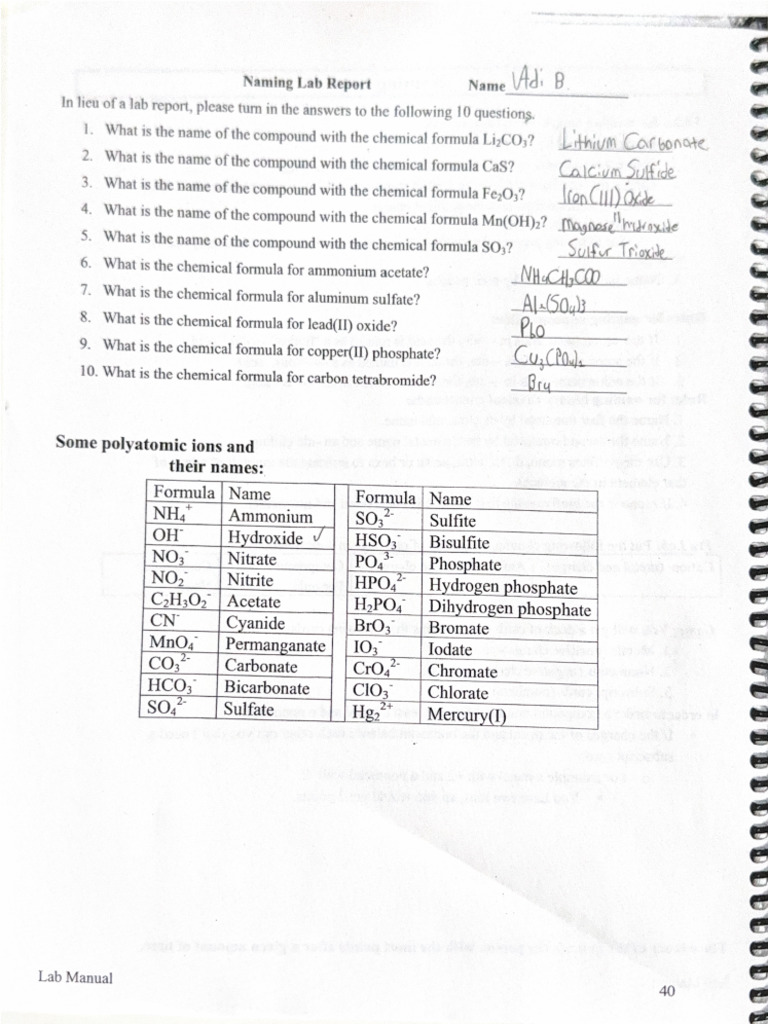 Naming Lab Report Name Adi B.
In lieu of a lab report, please turn in the answers to the following 10 questions.
1. What is the name of the compound with the chemical formula Li₂CO₃? Lithium Carbonate
2. What is the name of the compound with the chemical formula CaS? Calcium Sulfide
3. What is the name of the compound with the chemical formula Fe₂O₃? Iron(III) Oxide
4. What is the name of the compound with the chemical formula Mn(OH)₂? Magnase II
5. What is the name of the compound with the chemical formula SO₃? Sulfur Trioxide
6. What is the chemical formula for ammonium acetate? NH₄CH₃COO
7. What is the chemical formula for aluminum sulfate? Al₂(SO₄)3
8. What is the chemical formula for lead(II) oxide? Pbo
9. What is the chemical formula for copper(II) phosphate? Cu₃(PO₄)₂
10. What is the chemical formula for carbon tetrabromide? Br₄
Some polyatomic ions and
their names:
Formula Name Formula Name
NH₄⁺ Ammonium SO₃²⁻ Sulfite
OH⁻ Hydroxide ✓ HSO₃⁻ Bisulfite
NO₃⁻ Nitrate PO₄³⁻ Phosphate
NO₂⁻ Nitrite HPO₄²⁻ Hydrogen phosphate
C₂H₃O₂⁻ Acetate H₂PO₄⁻ Dihydrogen phosphate
CN⁻ Cyanide BrO₃⁻ Bromate
MnO₄⁻ Permanganate IO₃⁻ Iodate
CO₃²⁻ Carbonate CrO₄²⁻ Chromate
HCO₃⁻ Bicarbonate ClO₃⁻ Chlorate
SO₄²⁻ Sulfate Hg₂²⁺ Mercury(I)
Lab Manual
40